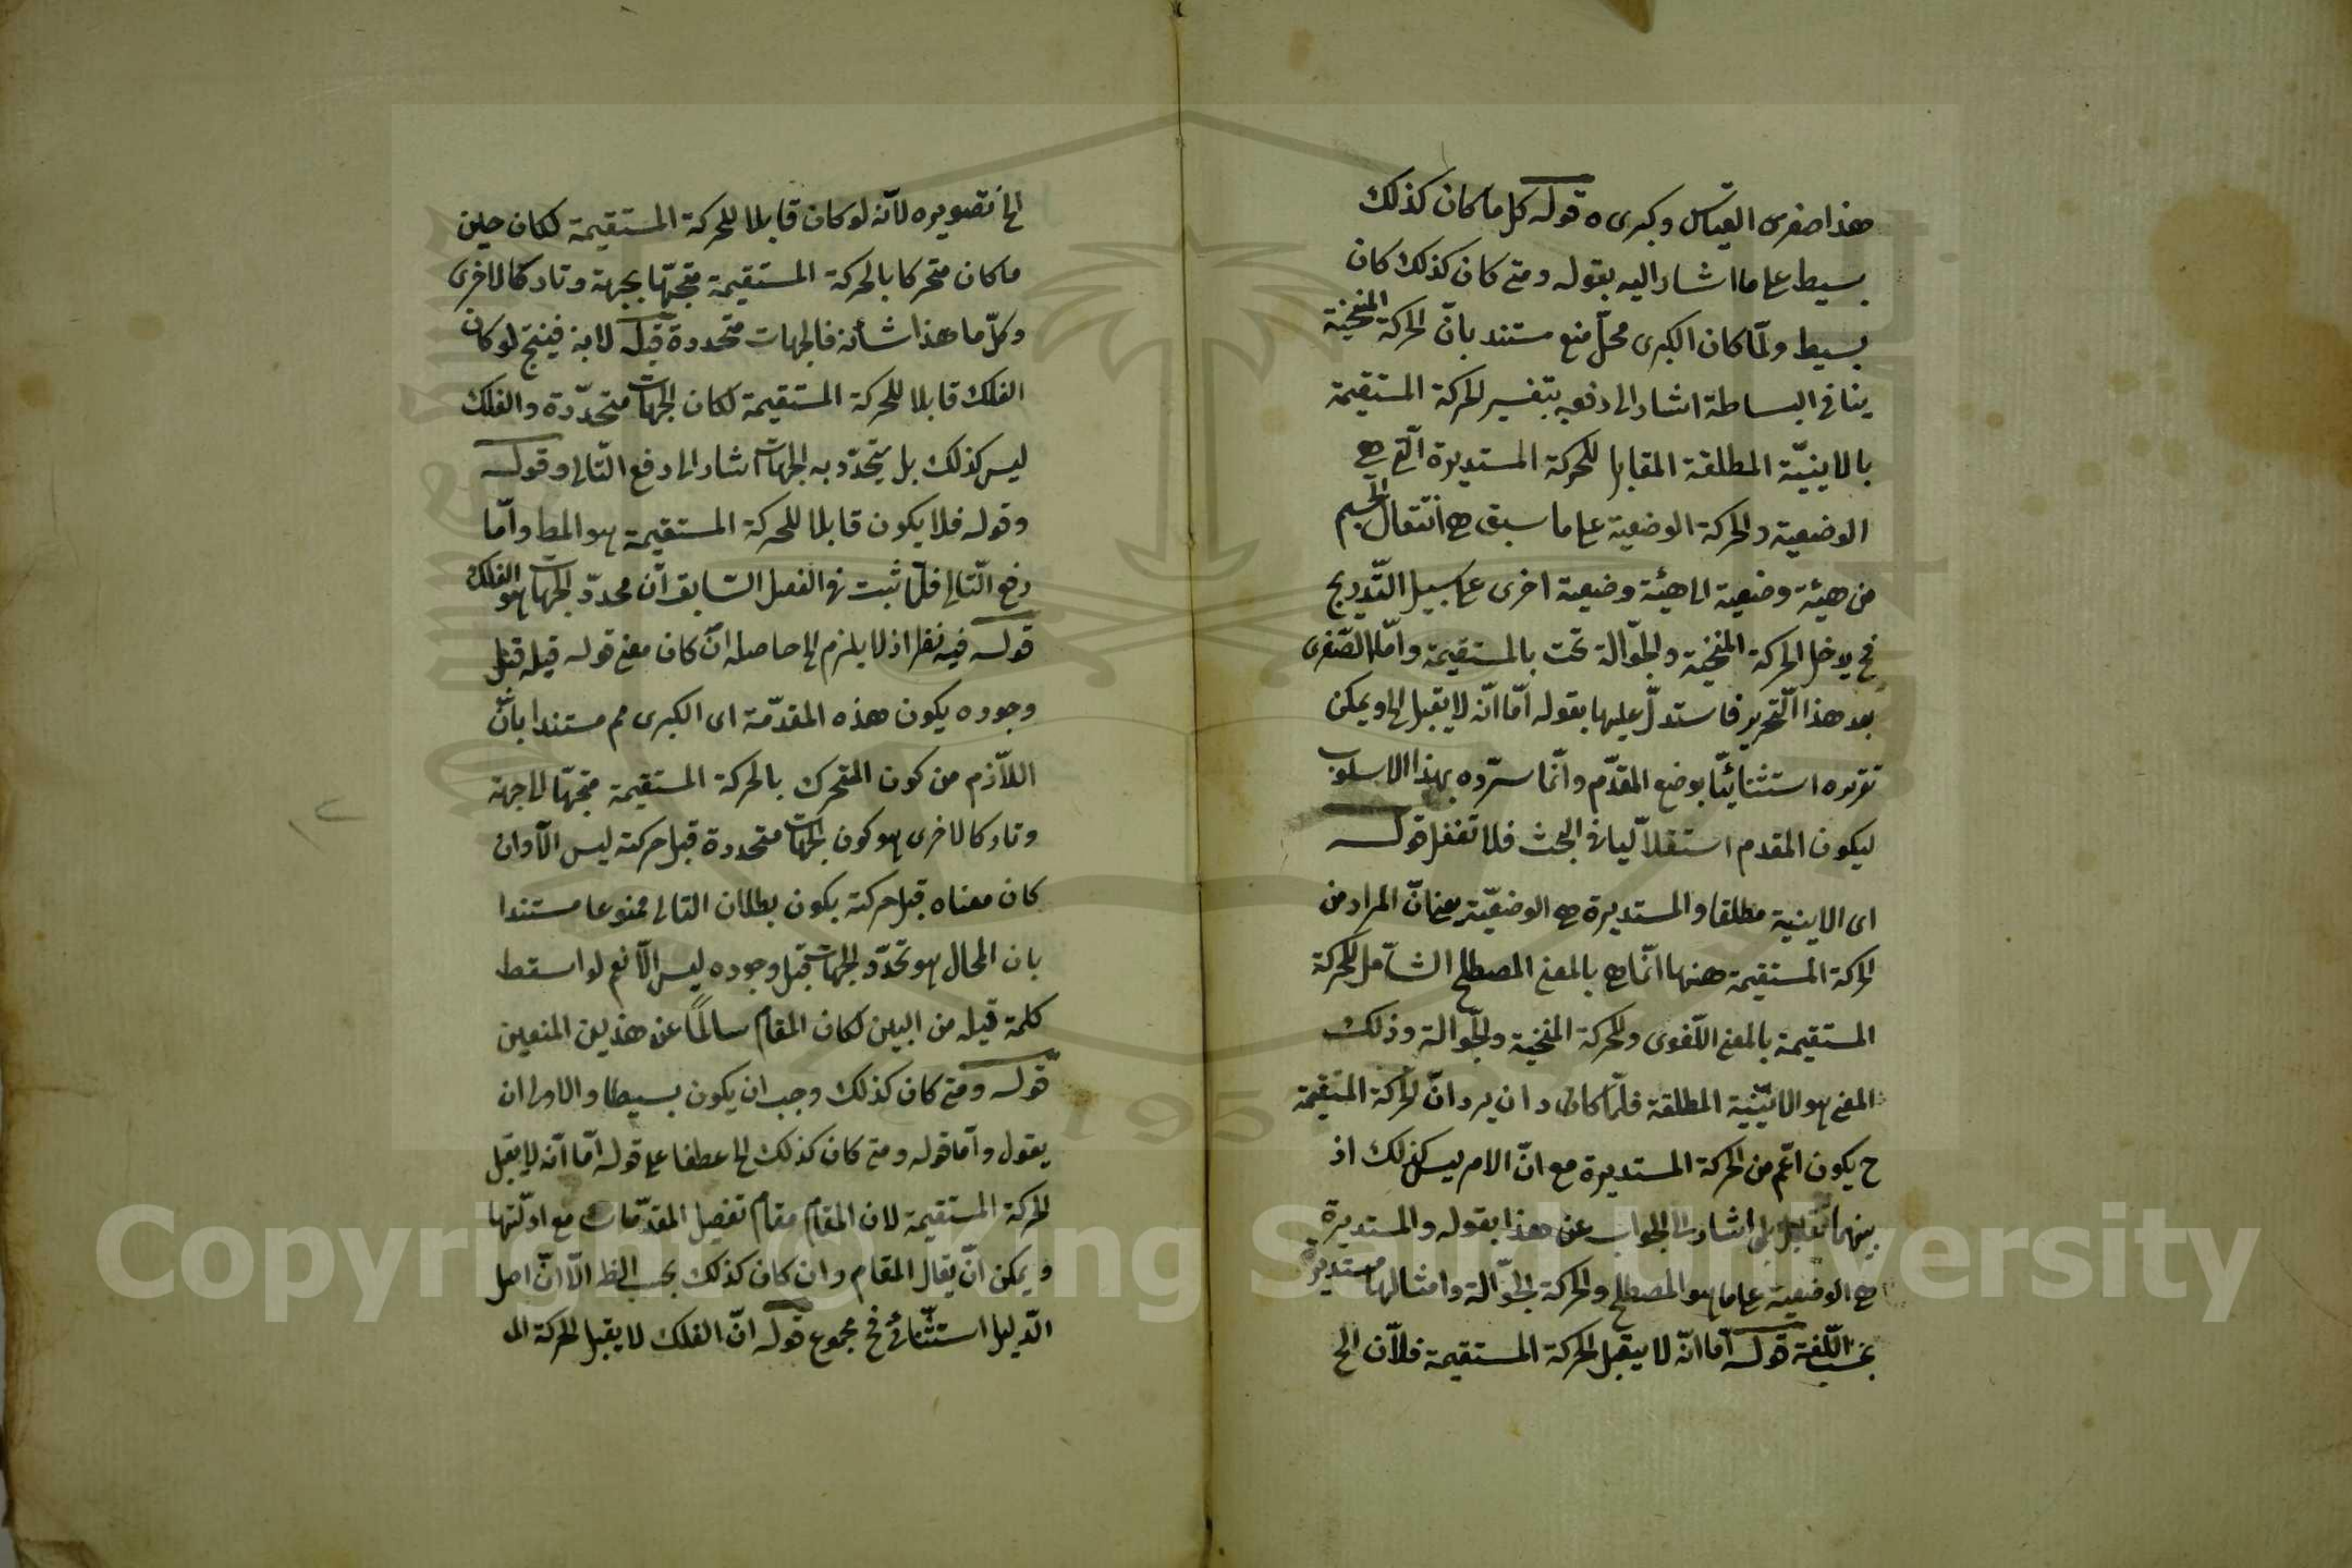 هذا صغرى القياس وكبرى ه قوله كل ما كان كذلك
بسيط على ما اشار اليه بقوله ومتى كان كذلك كان
بسيط ولمّا كان الكبرى محلّ منع مستند بانّ الحركة المنحنية
ينافى البساطة اشار الى دفعه بتفسير الحركة المستقيمة
بالاينيّة المطلقة المقابل للحركة المستديرة الّتى هى
الوضعية والحركة الوضعية على ما سبق هى انتقال الجسم
من هيئة وضعية الى هيئة وضعية اخرى على سبيل التّدريج
فح يدخل الحركة المنحنية والجوّالة تحت بالمستقيمة وامّا الصّغرى
بعد هذا التّحرير فاستدلّ عليها بقوله امّا انّه لا يقبل الخ ويمكن
تقريره استثنائيّا بوضع المقدّم وانّما سرّده بهذا الاسلوب
ليكون المقدم استقلاليا فى البحث فلا تغفل قوله
اى الاينية مطلقا والمستديرة هى الوضعيّة يعنى انّ المراد من
الحركة المستقيمة ههنا انّما هى بالمعنى المصطلح الشامل للحركة
المستقيمة بالمعنى اللّغوى وللحركة المنحنية والجوّالة وذلك
المعنى هو الاينيّة المطلقة فلمّا كان ان يرد انّ الحركة المستقيمة
ح يكون اعّم من الحركة المستديرة مع انّ الامر ليس كذلك اذ
بينهما تقابل اشار الى الجواب عن هذا بقوله والمستديرة
هى الوضعية على ما هو المصطلح والحركة الجوّالة وامثالها مستديرة
بحسب اللّغة قوله امّا انّه لا يقبل الحركة المستقيمة فلانّ الخ
الخ تصويره لانّه لو كان قابلا للحركة المستقيمة لكان حين
ما كان متحركا بالحركة المستقيمة متجهّا بجهة وتاركا لاخرى
وكلّ ما هذا شأنه فالجهات متحددة قبله لا به فينتج لو كان
الفلك قابلا للحركة المستقيمة لكان الجهات متحدّدة والفلك
ليس كذلك بل يتحدّد به الجهات اشار الى دفع التّالى وقوله
وقوله فلا يكون قابلا للحركة المستقيمة هو المط وامّا
رفع التّالى فلما ثبت فى الفصل السّابق انّ محدّد الجهات هو الفلك
قوله فيه نظر اذ لا يلزم الخ حاصله انّ كان معنى قوله قبله قبل
وجوده يكون هذه المقدّمة اى الكبرى مم مستندا بانّ
اللاّزم من كون المتحرك بالحركة المستقيمة متجهّا الى جهة
وتاركا لاخرى هو كون الجهات متحددة قبل حركته ليس الّا وان
كان معناه قبل حركته يكون بطلان التالى ممنوعا مستندا
بان المحال هو تحدّد الجهات قبل وجوده ليس الّا نعم لو اسقط
كلمة قبله من البين لكان المقام سالمًا عن هذين المنعين
قوله ومتى كان كذلك وجب ان يكون بسيطا والاولى ان
يقول وامّا قوله ومتى كان كذلك الخ عطفا على قوله امّا انّه لا يقبل
الحركة المستقيمة لان المقام مقام تفصيل المقدّمات مع ادلّتها
ويمكن انّ يقال المقام وان كان كذلك بحسب الظ الّا انّ اصل
الدّليل استثنائى فح مجموع قوله انّ الفلك لا يقبل الحركة الى
Copyright © King Saud University